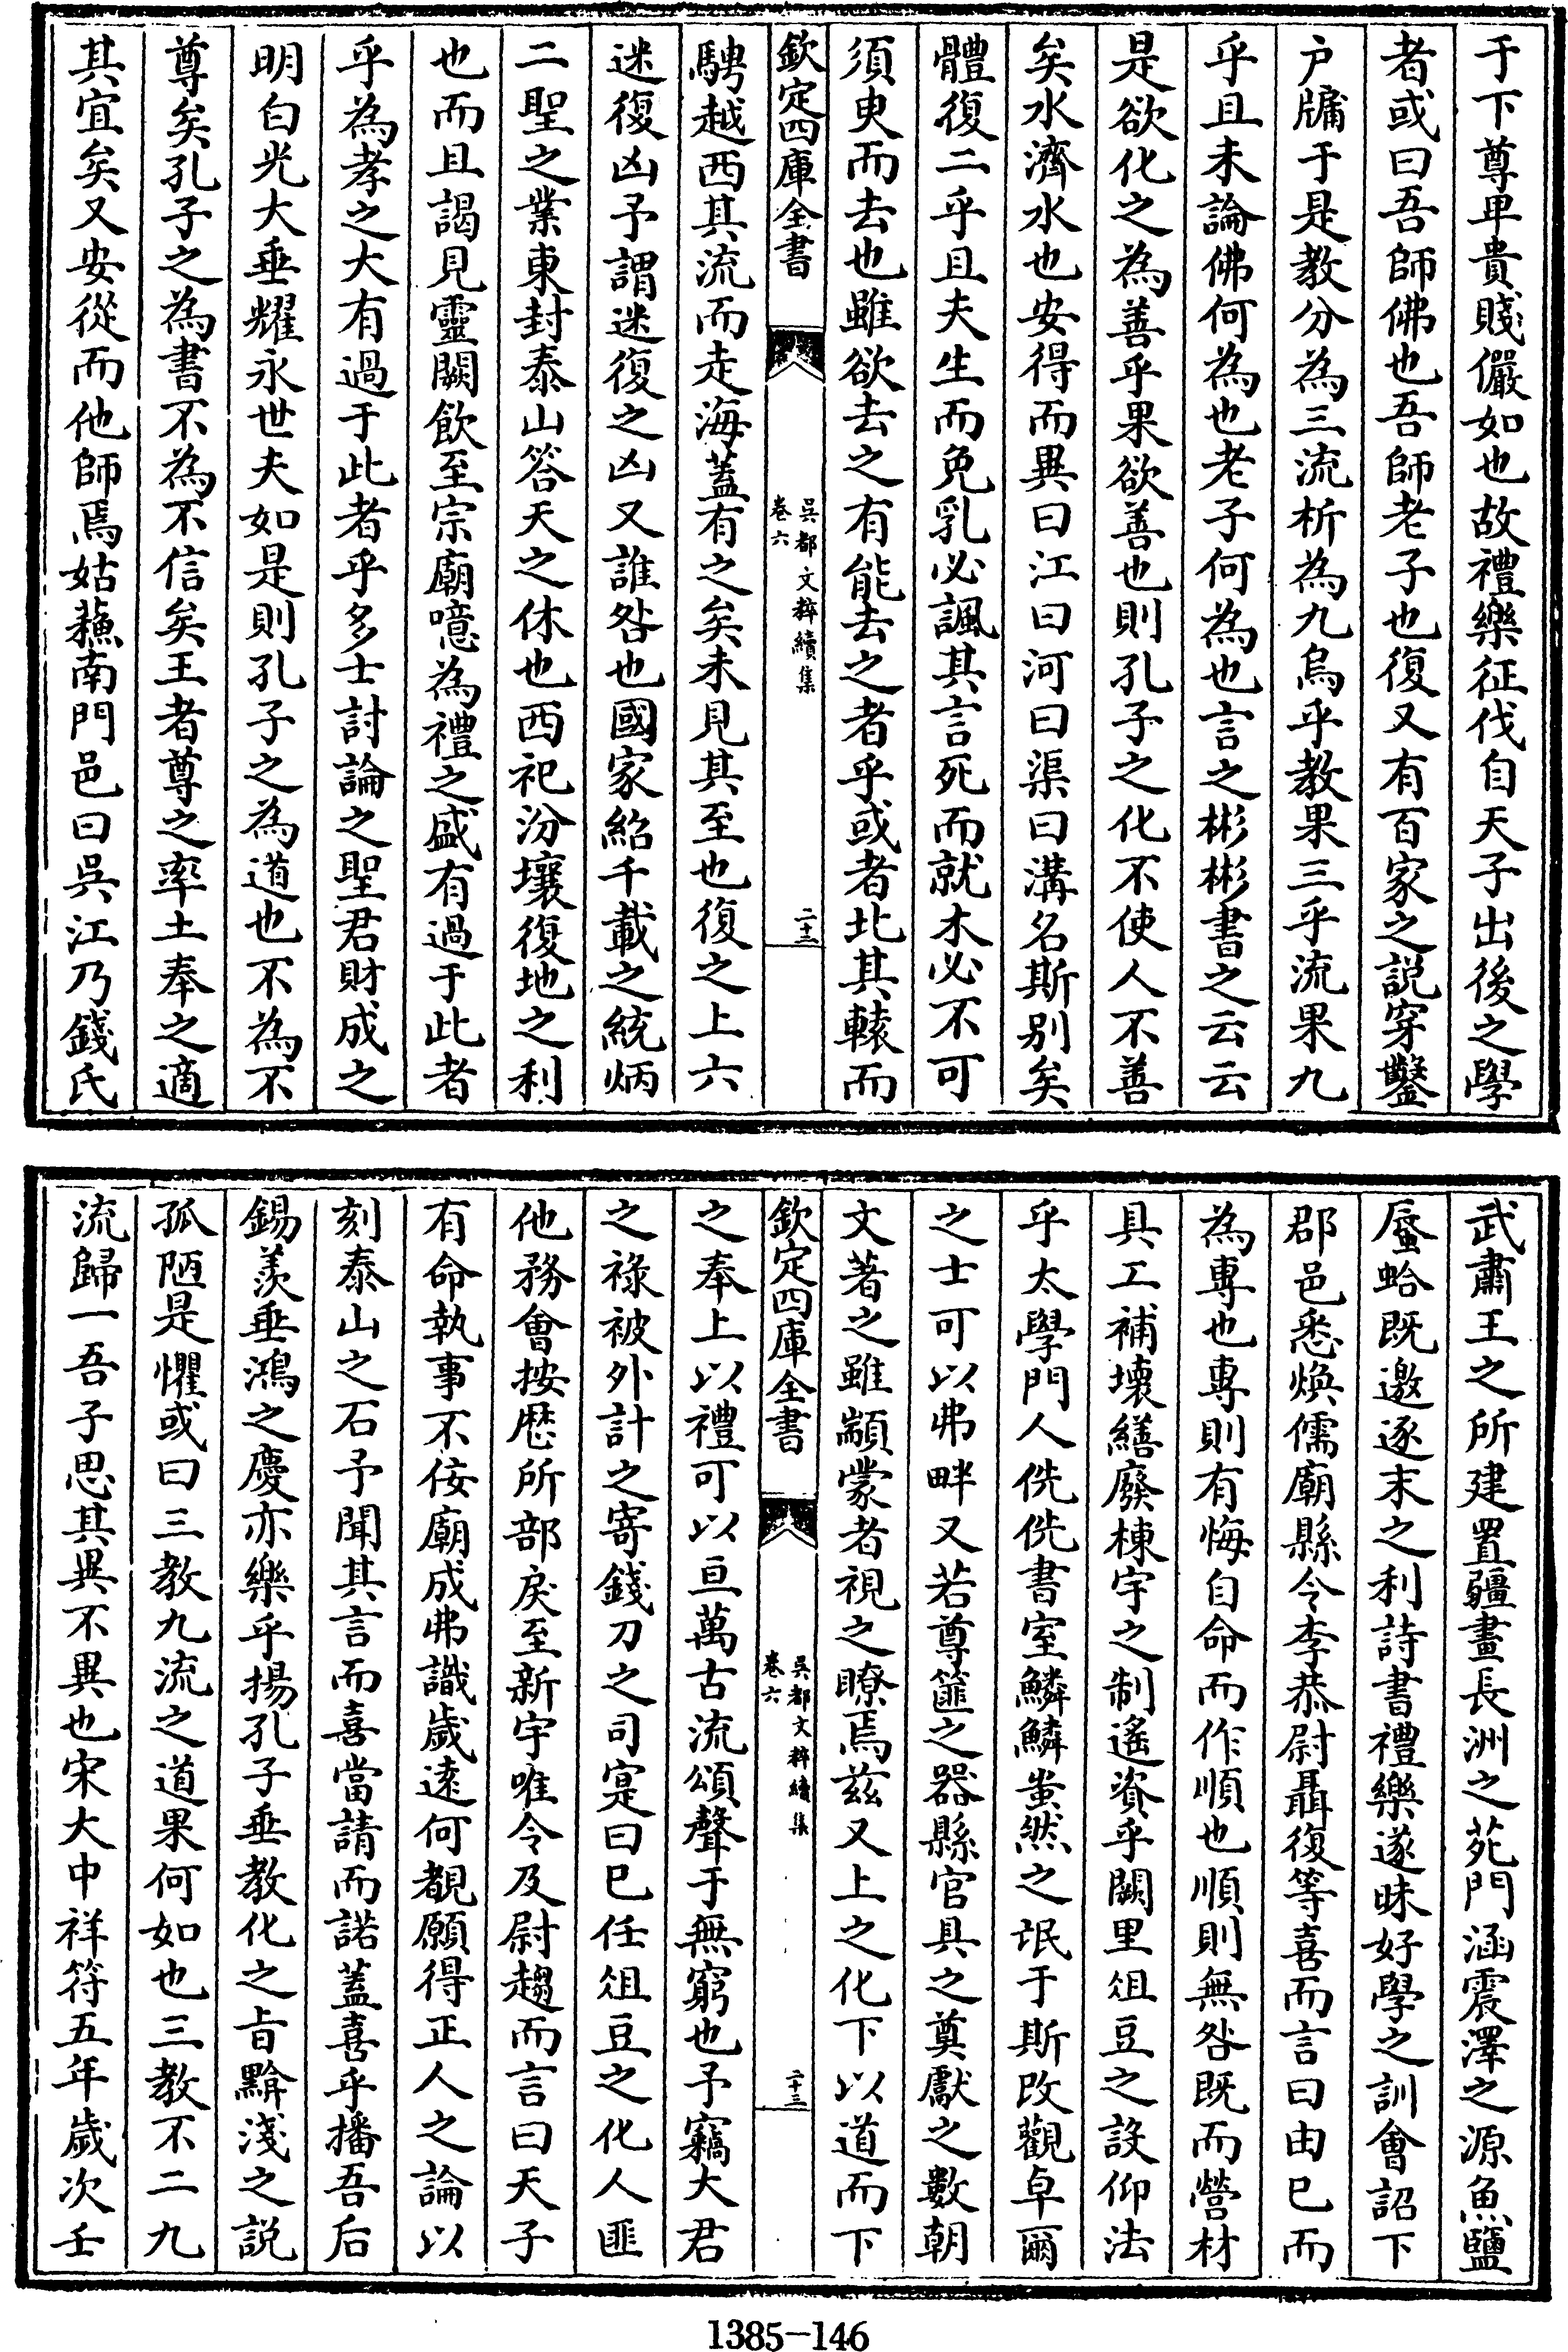 于下尊卑貴賤儼如也故禮樂征伐自天子出後之學
者或曰吾師佛也吾師老子也復又有百家之説穿鑿
户牖于是教分為三流析為九烏乎教果三乎流果九
乎且未論佛何為也老子何為也言之彬彬書之云云
是欲化之為善乎果欲善也則孔子之化不使人不善
矣水濟水也安得而異曰江曰河曰渠曰溝名斯别矣
體復二乎且夫生而免乳必諷其言死而就木必不可
須臾而去也雖欲去之有能去之者乎或者北其轅而
欽定四庫全書
吳都文粹續集
卷六
二十三
騁越西其流而走海蓋有之矣未見其至也復之上六
迷復凶予謂迷復之凶又誰咎也國家紹千載之統炳
二聖之業東封泰山答天之休也西祀汾壤復地之利
也而且謁見靈闕飲至宗廟噫為禮之盛有過于此者
乎為孝之大有過于此者乎多士討論之聖君財成之
明白光大垂耀永世夫如是則孔子之為道也不為不
尊矣孔子之為書不為不信矣王者尊之率土奉之適
其宜矣又安從而他師焉姑蘓南門邑曰吳江乃錢氏
武肅王之所建置疆畫長洲之苑門涵震澤之源魚鹽
蜃蛤既邀逐末之利詩書禮樂遂昧好學之訓會詔下
郡邑悉煥儒廟縣令李恭尉聶復等喜而言曰由已而
為專也專則有悔自命而作順也順則無咎既而營材
具工補壞繕廢棟宇之制遙資乎闕里俎豆之設仰法
乎太學門人侁侁書室鱗鱗蚩然之氓于斯改觀卓爾
之士可以弗畔又若尊篚之器縣官具之奠獻之數朝
文著之雖顓蒙者視之瞭焉兹又上之化下以道而下
欽定四庫全書
吳都文粹續集
卷六
二十三
之奉上以禮可以亘萬古流頌聲于無窮也予竊大君
之祿被外計之寄錢刀之司寔曰已任俎豆之化人匪
他務會按歴所部戾至新宇唯令及尉趨而言曰天子
有命執事不侫廟成弗識歲遠何覩願得正人之論以
刻泰山之石予聞其言而喜當請而諾蓋喜乎播吾后
錫羨垂鴻之慶亦樂乎揚孔子垂教化之㫖黭淺之説
孤陋是懼或曰三教九流之道果何如也三教不二九
流歸一吾子思其異不異也宋大中祥符五年歲次壬
1385-146